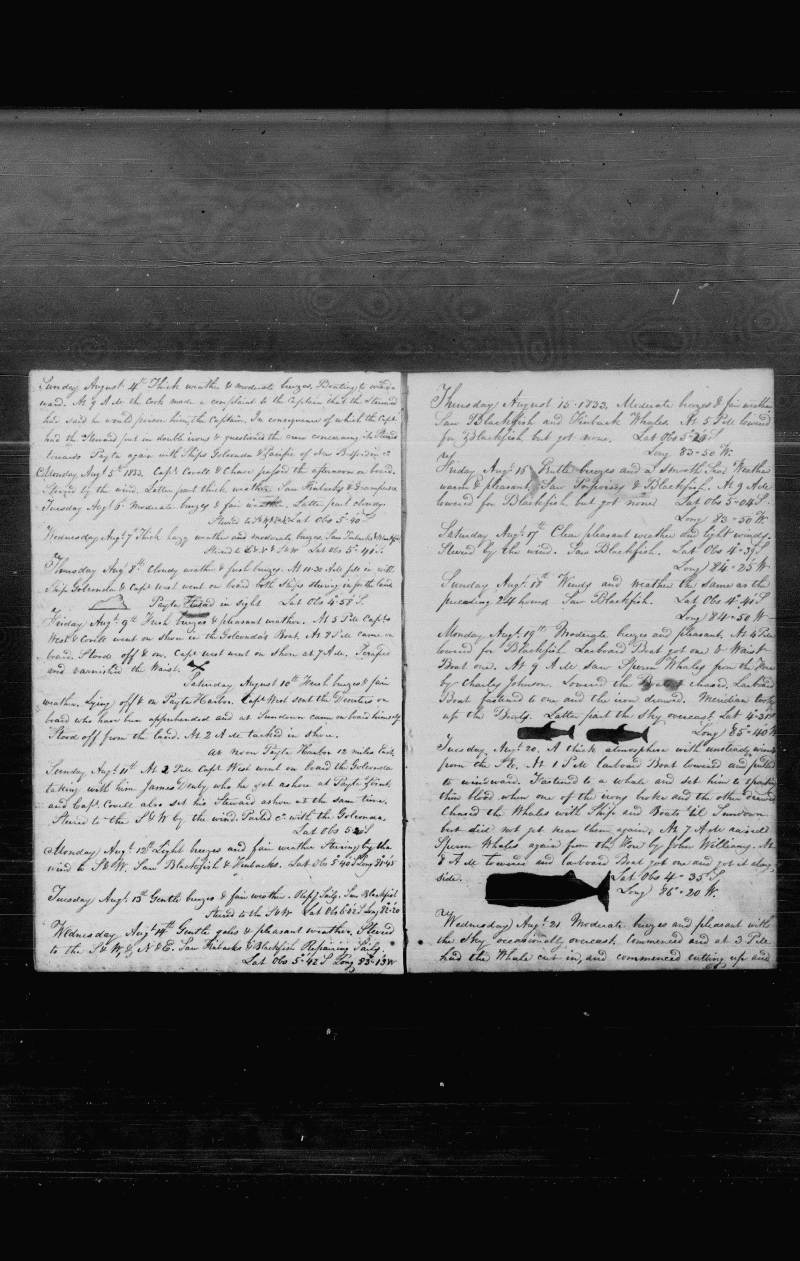 Sunday August 4th Thick weather & moderate breezes. Beating to wind
ward. At 9 A.M. the Cook made a complaint to the Captain that the Steward
had said he would poison him, the Captain. In consequence of which the Capt
had the Steward put in double irons & questioned the crew concerning it. Stood
towards Payta again with Ships Golconda & Pacific of New Bedford in
Monday Augt 5th 1833. Capt Covell & Chase passed the afternoon on board.
Steered by the wind. Latter part thick weather. Saw Finbacks & Grampuses
Tuesday Augt 6th Moderate breezes & fair weather. Latter part cloudy.
Lat Obs 5°-40 S.
Wednesday Augt 7th Thick hazy weather and moderate breezes. Saw Finbacks & Blackfish
Lat Obs 5°-41 S.
Thursday Augt 8th Cloudy weather & fresh breezes. At 11-30 A.M. fell in with
Ship Golconda & Capt West went on board both Ships steering in for the land.
Payta Head in sight Lat Obs 4°-58 S.
Friday Augt 9th Fresh breezes & pleasant weather. At 5 P.M. Capts
West & Covell went on Shore in the Golconda's Boat. At 9 P.M. came on
board. Stood off & on. Capt West went on Shore at 7 A.M. Scraped
and varnished the Waist.
Saturday August 10th Fresh breezes & fair
weather. Lying off & on Payta Harbor. Capt West sent the Deserters on
board who have been apprehended and at Sundown came on board himself
Stood off from the land. At 2 A.M. tacked in shore.
At Noon Payta Harbor 12 miles dist.
Sunday Augt 11th At 2 P.M. Capt West went on board the Golconda
taking with him James Denby who he set ashore at Payta Point.
and Capt Covell also set his Steward ashore at the same time.
Steered to the S&W by the wind. Parted Co with the Golconda.
Lat Obs 5°-20 S
Monday Augt 12th Light breezes and fair weather Steering by the
wind to S&W. Saw Blackfish & Finbacks. Lat Obs 5°40 S Long 81°45
Tuesday Augt 13th Gentle breezes & fair weather. Repg Sails. Saw Blackfish
Steered to the S&W Lat Obs
Wednesday Augt 14th Gentle gales & pleasant weather. Steered
to the S&W, & N&E. Saw Finbacks & Blackfish Repairing Sails.
Lat Obs 5°42 S Long 83°-13 W
Thursday August 15-1833. Moderate breezes & fair weather
Saw Blackfish and Finback Whales. At 5 P.M. lowered
for Blackfish but got none. Lat Obs 5-20 S
Long 83-50 W.
Friday Augt 16 Gentle breezes and a Smooth Sea Weather
warm & pleasant. Saw Porpoises & Blackfish. At 9 A.M.
lowered for Blackfish but got none Lat Obs 5-04 S.
Long 83-50 W.
Saturday Augt 17th Clear pleasant weather and light winds.
Steered by the wind. Saw Blackfish. Lat Obs 4°-39 S
Long 84-25 W
Sunday Augt 18th Winds and weather the same as the
preceding 24 hours Saw Blackfish. Lat Obs 4°-41 S.
Long 84-50 W
Monday Augt 19th Moderate breezes and pleasant. At 4 P.M.
lowered for Blackfish Larboard Boat got one & Waist
Boat one. At 9 A.M. saw Sperm Whales from the Fore
by Charles Johnson. Lowered the Boats & chased. Larboard
Boat fastened to one and the iron drawed. Meridian took
up the Boats. Latter part the Sky overcast Lat 4-38 S
Long 85-40 W
Tuesday Augt 20. A thick atmosphere with unsteady winds
from the S&E. At 1 P.M. larboard Boat lowered and pulled
to windward. Fastened to a whale and set him to spouting
thin blood when one of the irons broke and the other drawed.
Chased the Whales with Ship and Boats til Sundown
but did not get near them again. At 7 A.M. raised
Sperm Whales again from the Fore by John Williams. At
8 A.M. lowered and larboard Boat got one and got it along
side. Lat Obs 4-35 S
Long 86-20 W.
Wednesday Augt 21 Moderate breezes and pleasant with
the Sky occasionally overcast. Commenced and at 3 P.M.
had the Whale cut in, and commenced cutting up and